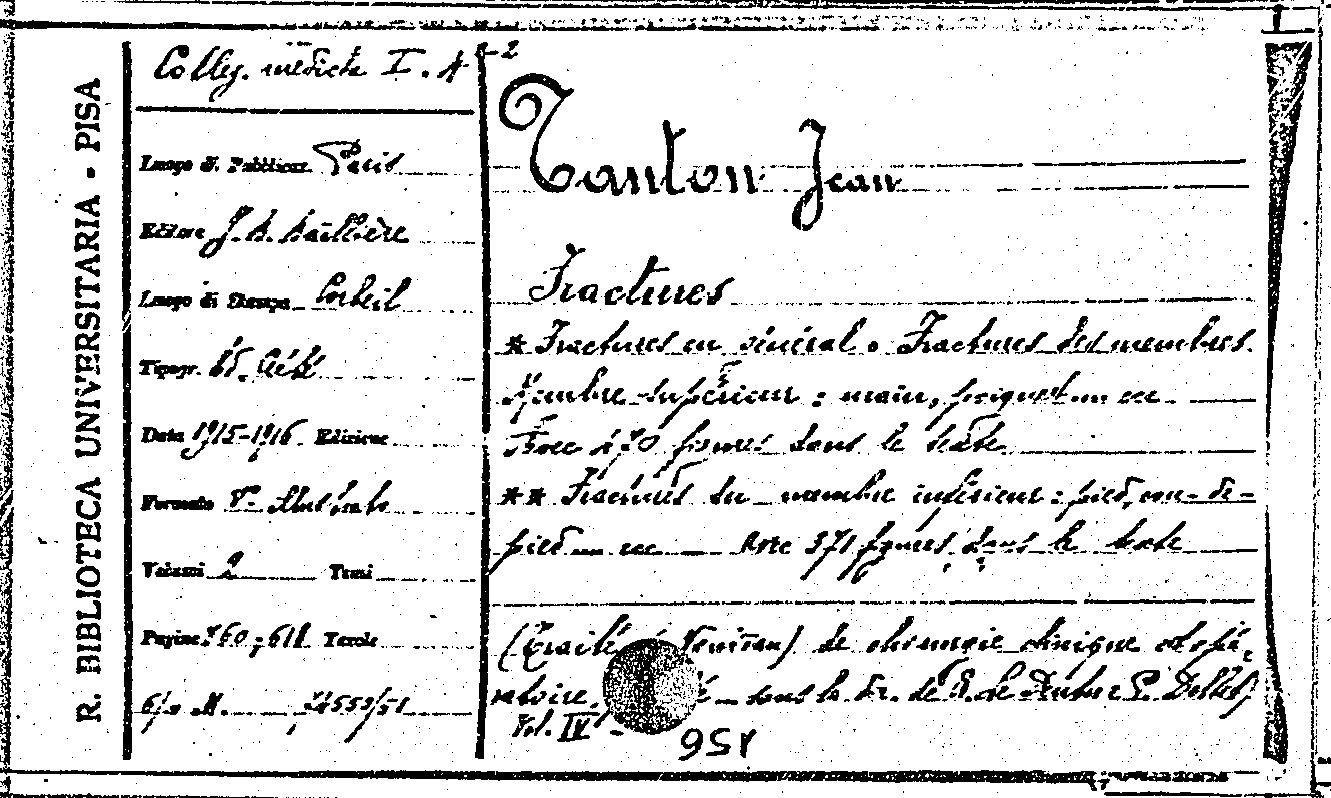 R. BIBLIOTECA UNIVERSITARIA - PISA
Colleg. medicta I. A 1-2
Luogo di Pubblicaz. Paris
Editore J. B. Baillière
Luogo di Stampa Corbeil
Tipogr. Éd. Crété
Data 1915-1916 Edizione
Formato 8°
Volumi 2 Tomi
Pagine 760; 618 Tavole
Tanton Jean
Fractures
* Fractures en général. Fractures des membres
Membre supérieur: main, poignet ecc
Avec 470 figures dans le texte
** Fractures du membre inférieur: pied, cou-de-
pied ecc Avec 371 figures dans le texte
(Traité de chirurgie clinique et opé-
ratoire. sous la dir. de A. Le Dentu P. Delbet)
Vol. IV